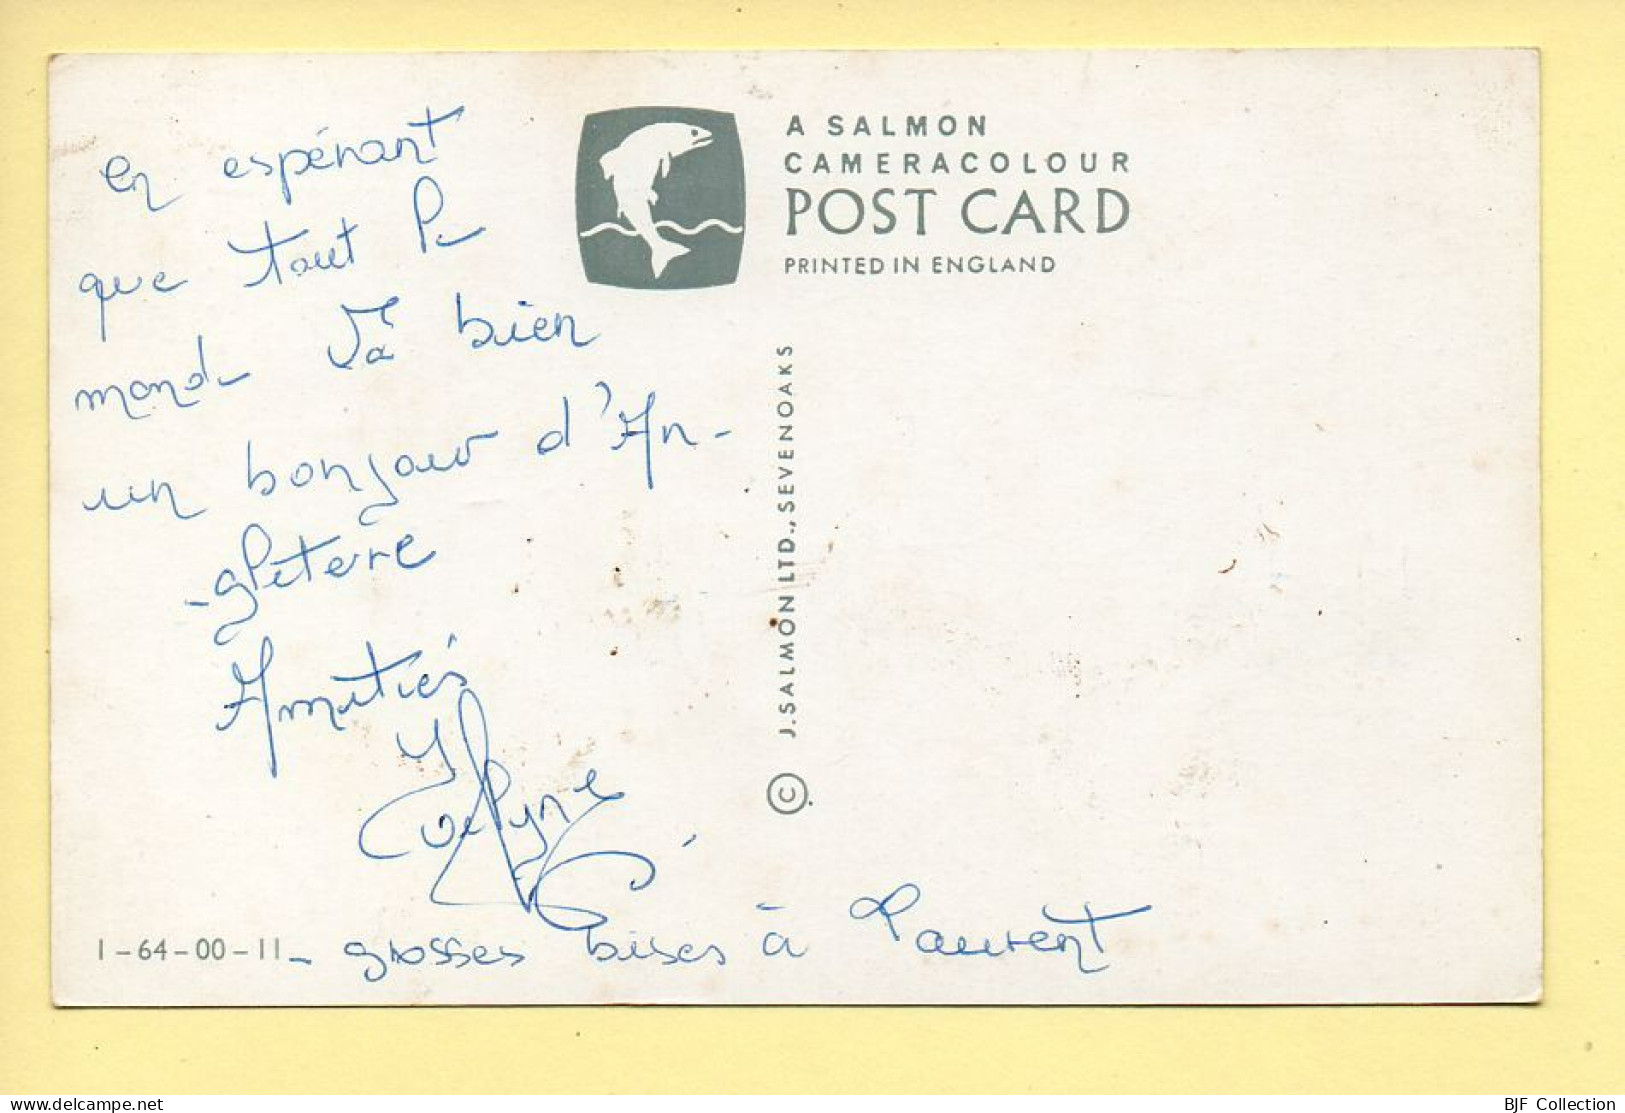 en espérant
que tout le
monde va bien
un bonjour d'An-
-gleterre
Amitiés
Evelyne
- grosses bises à Laurent
A SALMON
CAMERACOLOUR
POST CARD
PRINTED IN ENGLAND
© J. SALMON LTD., SEVENOAKS
1-64-00-11
BJF Collection